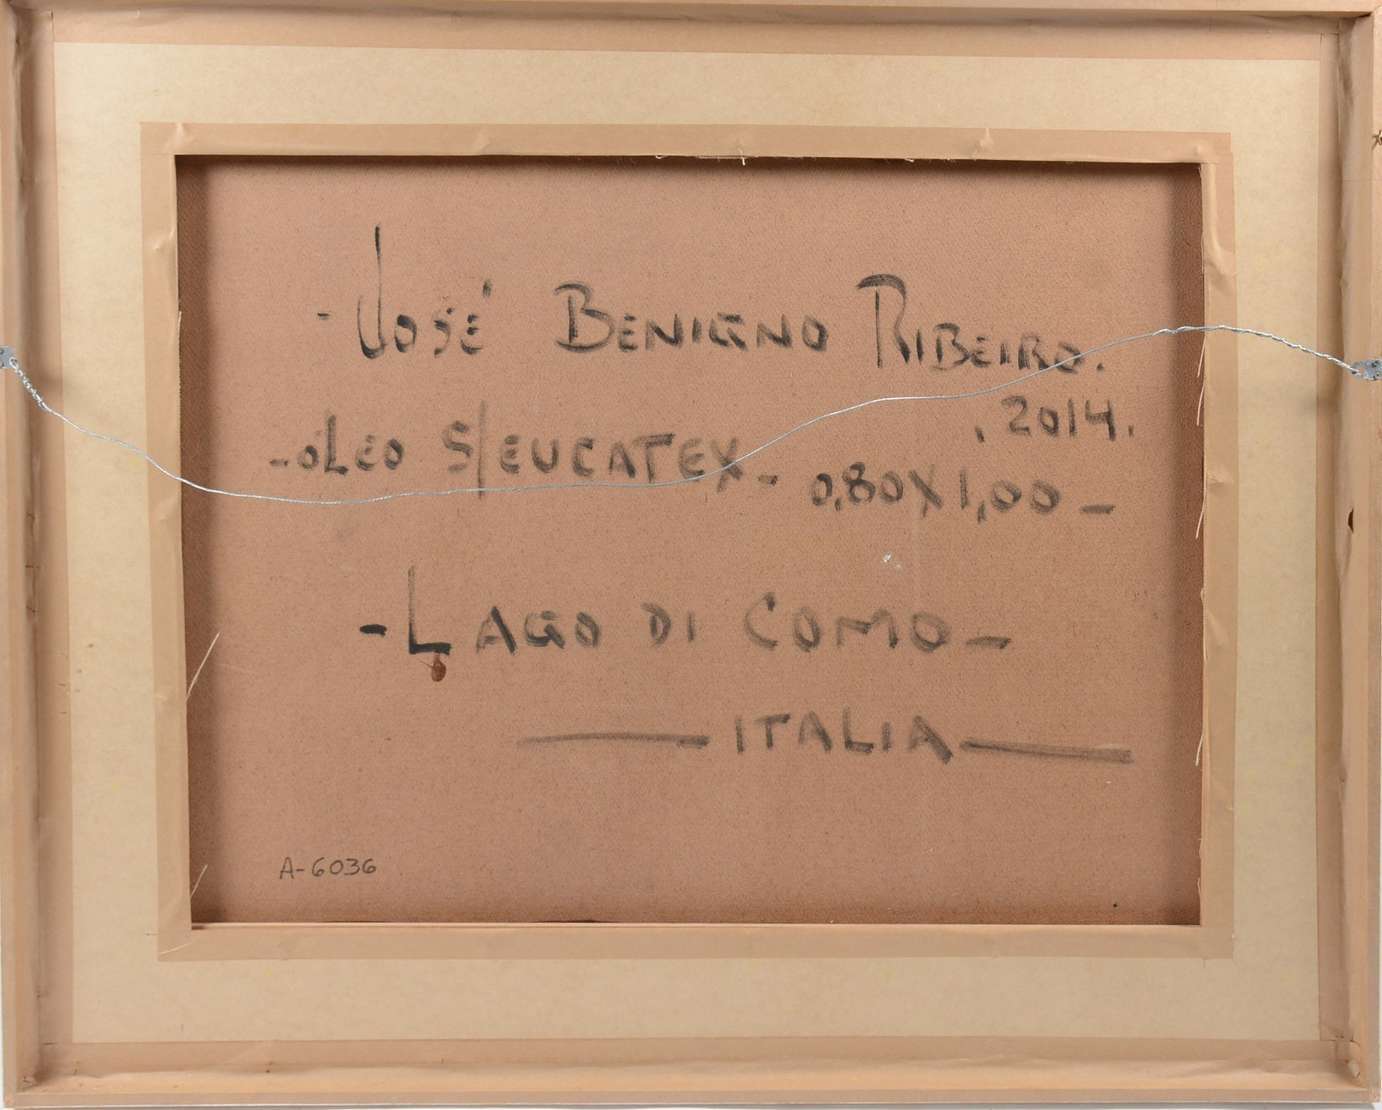 - José Benigno Ribeiro.
. 2014.
- oLeo S/EUCATEX - 0,80X1,00 -
- LAGO DI COMO -
— ITALIA —
A-6036